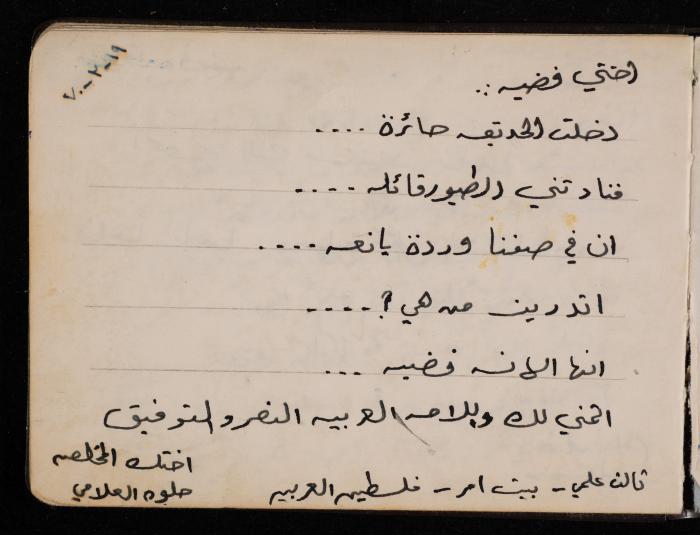 ١٩-٢-٧٠
اختي فضيه..
دخلت الحديقه حائرة ....
فنادتني الطيور قائله ....
ان في صفنا وردة يانعه ....
اتدرين من هي؟ ....
انها الانسه فضيه ...
اتمني لك وللامه العربيه النصر والتوفيق
اختك المخلصه
حلوه العلامي
ثالث علمي - بيت امر - فلسطين العربيه